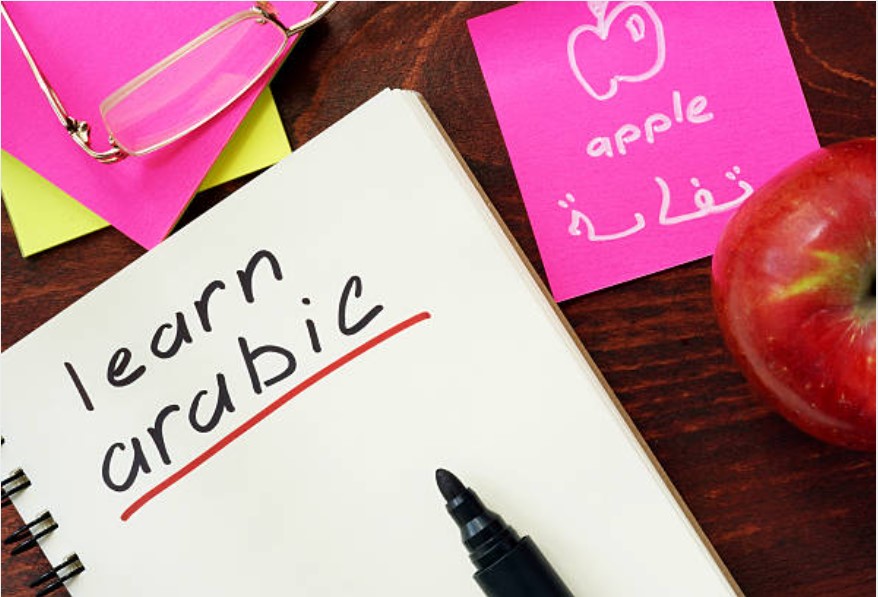 learn
arabic
apple
تفاحة